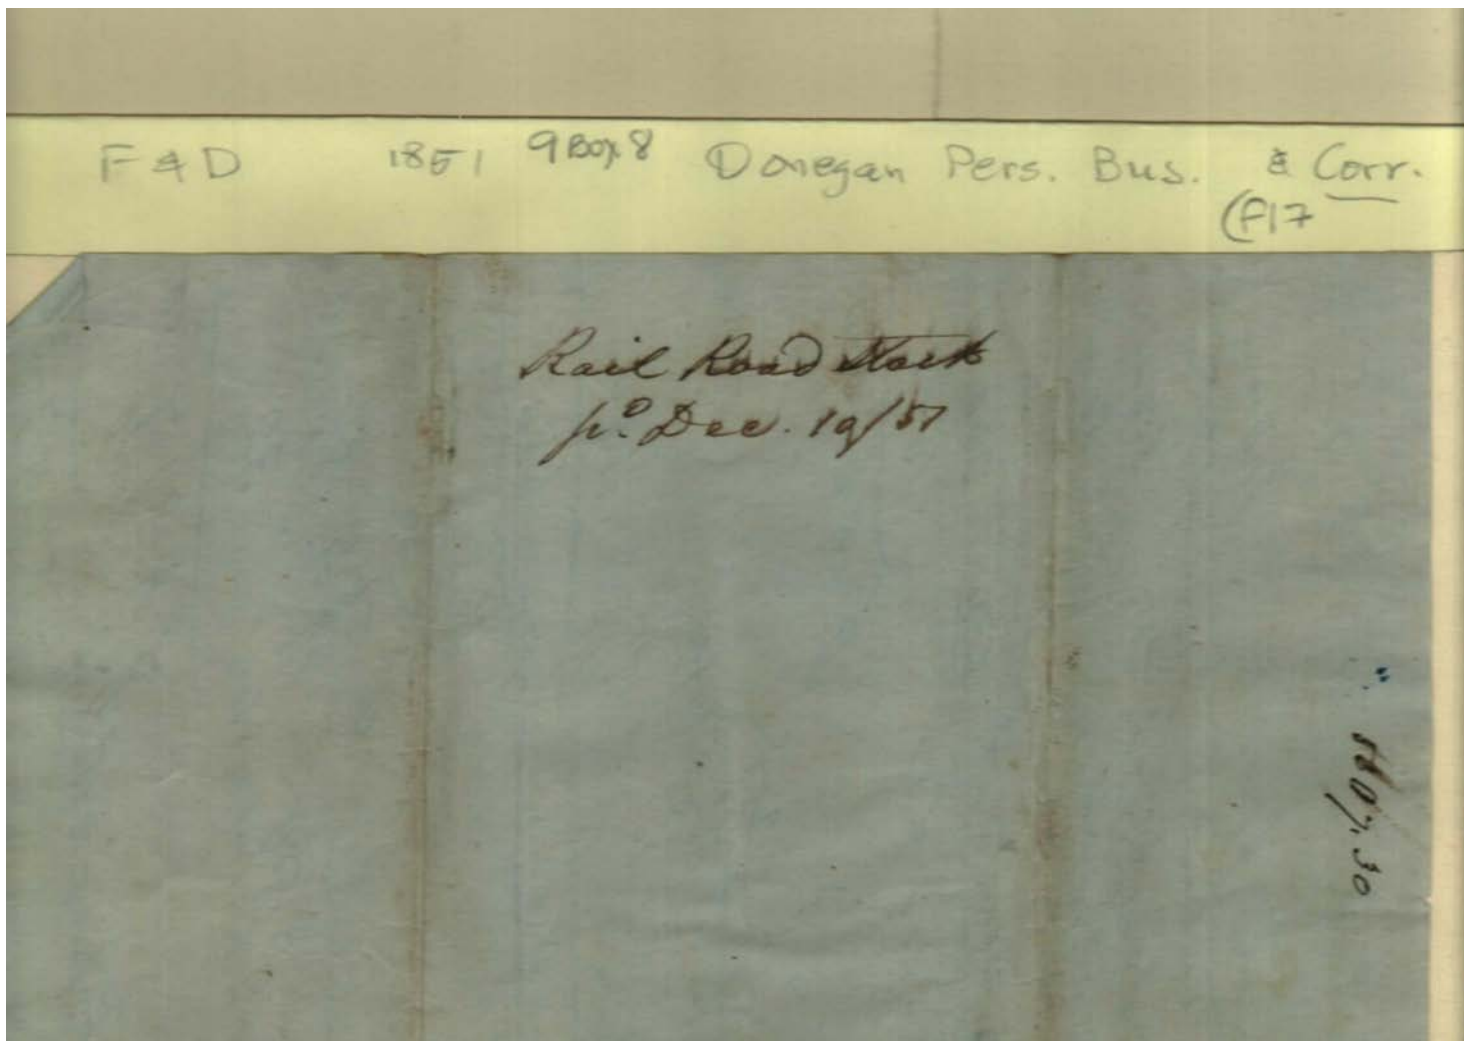 F & D 1851 9 Box 8 Donegan Pers. Bus. & Corr.
(F17
Rail Road Stock
pᵒ. Dec. 19/51